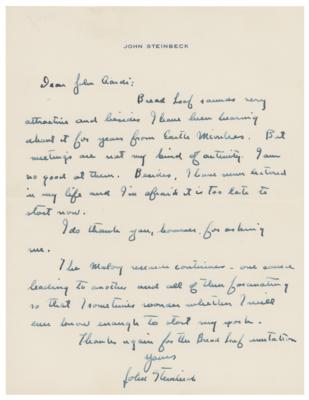 JOHN STEINBECK
Dear John Ciardi:
Bread Loaf sounds very
attractive and besides I have been hearing
about it for years from Castle Members. But
meetings are not my kind of activity. I am
no good at them. Besides, I have never lectured
in my life and I'm afraid it is too late to
start now.
I do thank you, however, for asking
me.
The Malory research continues - one source
leading to another and all of them fascinating
so that I sometimes wonder whether I will
ever know enough to start my work.
Thanks again for the Bread Loaf invitation
Yours
John Steinbeck